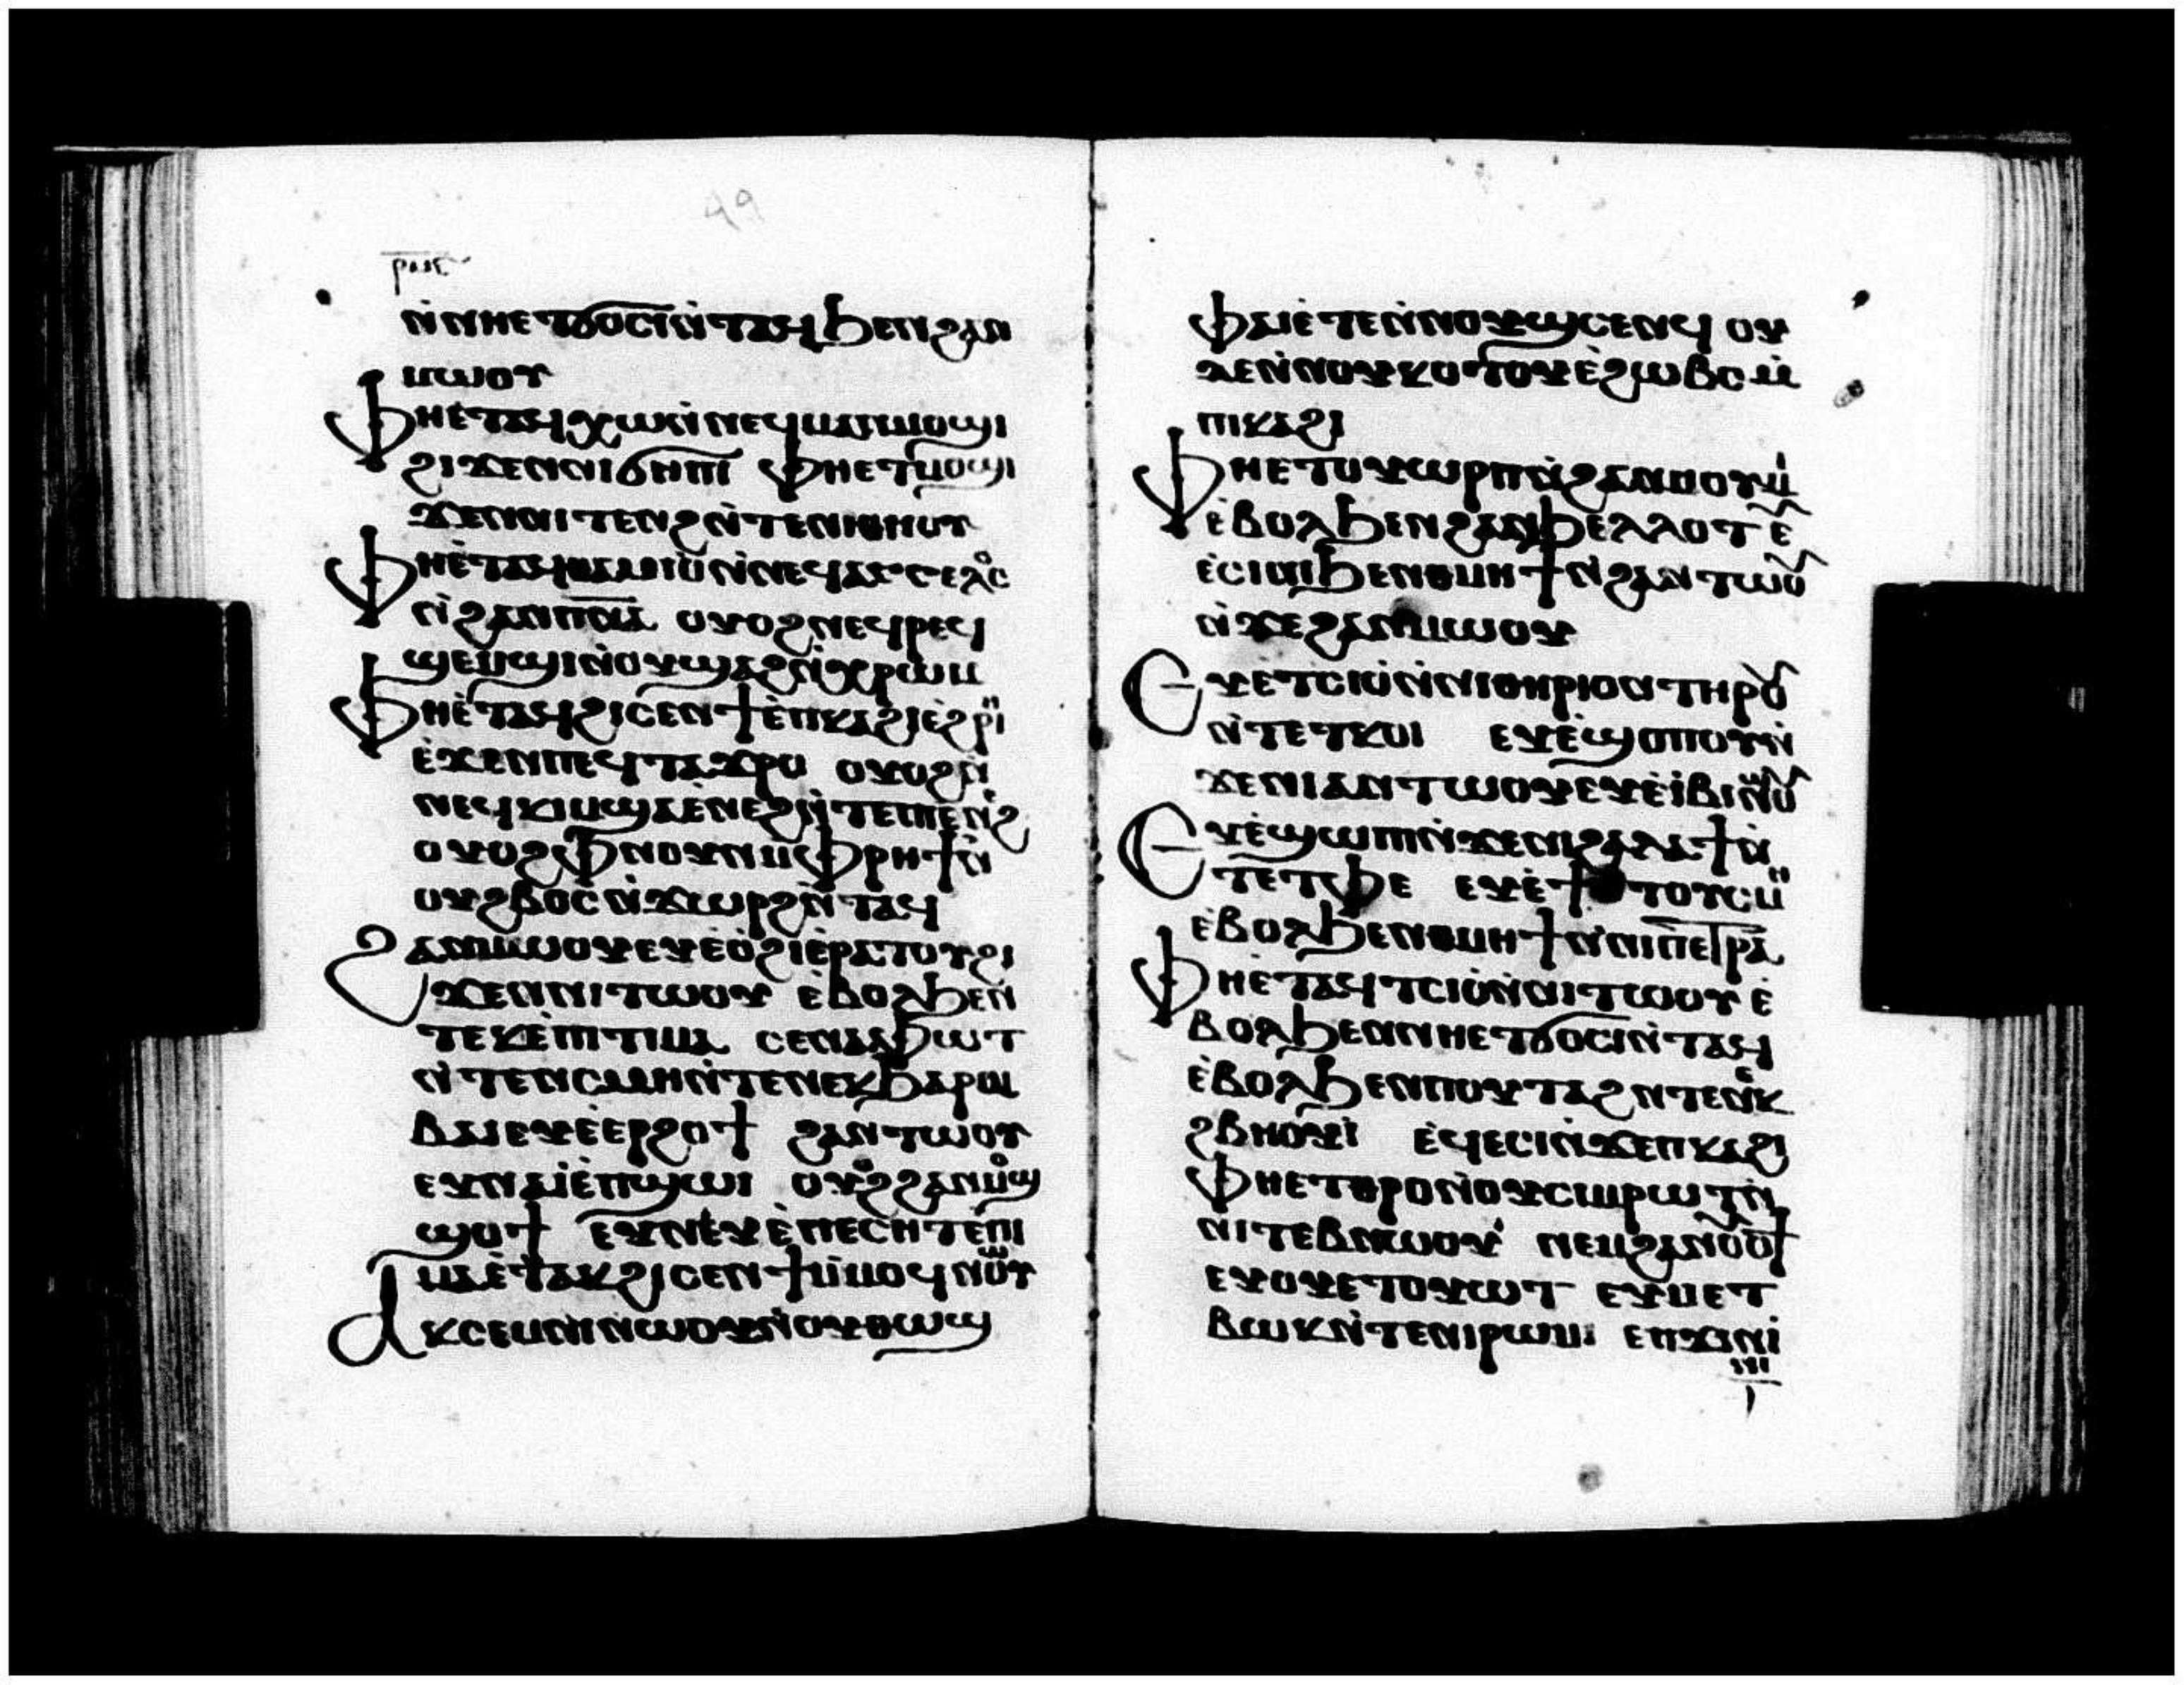 99
ⲣⲙⲉ
ⲛ̀ⲛⲏⲉⲧϭⲟⲥⲓⲛ̀ⲧⲁϥϧⲉⲛϩⲁⲛ
ⲙⲱⲟⲩ
ⲫⲏⲉ̀ⲧⲁϥⲭⲱⲛ̀ⲛⲉϥⲙⲁⲛⲙⲟϣⲓ
ϩⲓϫⲉⲛⲛⲓϭⲏⲡⲓ ⲫⲏⲉⲧⲙⲟϣⲓ
ϫⲉⲛⲛⲓⲧⲉⲛϩⲛ̀ⲧⲉⲛⲓⲑⲏⲟⲩ
ⲫⲏⲉ̀ⲧⲁϥⲑⲁⲙⲓⲟⲛ̀ⲛⲉϥⲁⲅⲅⲉⲗⲟⲥ
ⲛ̀ϩⲁⲛⲡⲛⲁ ⲟⲩⲟϩⲛⲉϥⲣⲉϥ
ϣⲉⲙϣⲓⲛ̀ⲟⲩϣⲁϩⲛ̀ⲭⲣⲱⲙ
ⲫⲏⲉ̀ⲧⲁϥϩⲓⲥⲉⲛϯⲉ̀ⲡⲕⲁϩⲓⲉ̀ϩⲣⲏⲓ
ⲉ̀ϫⲉⲛⲡⲉϥⲧⲁϫⲣⲟ ⲟⲩⲟϩⲛ̀
ⲛⲉϥⲕⲓⲙϣⲁⲉ̀ⲛⲉϩⲛ̀ⲧⲉⲡⲉⲛⲉϩ
ⲟⲩⲟϩⲫⲛⲟⲩⲛⲙⲫⲣⲏϯⲛ̀
ⲟⲩϩⲃⲟⲥⲛ̀ϫⲱⲣϩⲛ̀ⲧⲁϥ
ϩⲁⲛⲙⲱⲟⲩⲉⲩⲉ̀ⲟ̀ϩⲓⲉ̀ⲣⲁⲧⲟⲩϩⲓ
ϫⲉⲛⲛⲓⲧⲱⲟⲩ ⲉ̀ⲃⲟⲗϧⲉⲛ
ⲧⲉⲕⲉ̀ⲡⲓⲧⲓⲙⲓⲁ ⲥⲉⲛⲁⲫⲱⲧ
ⲛ̀ⲧⲉⲛⲥⲙⲏⲛ̀ⲧⲉⲛⲉⲕϧⲁⲣⲁ
ⲃⲁⲓⲉⲩⲉ̀ⲉⲣϩⲟϯ ϩⲁⲛⲧⲱⲟⲩ
ⲉⲩⲛⲁⲓⲉ̀ⲡϣⲱⲓ ⲟⲩⲟϩϩⲁⲛⲙⲉϣ
ϣⲟϯ ⲉⲩⲛⲉⲩⲉ̀ⲡⲉⲥⲏⲧⲉ̀ⲡⲓ
ⲙⲁⲉ̀ⲧⲁⲕϩⲓⲥⲉⲛϯⲙ̀ⲙⲟϥⲛⲱⲟⲩ
ⲁⲕⲥⲉⲙⲛⲓⲛⲱⲟⲩⲛ̀ⲟⲩⲑⲱϣ
ⲫⲁⲓⲉ̀ⲧⲉⲛ̀ⲛⲟⲩϣⲥⲉⲛϥ ⲟⲩ
ⲇⲉⲛ̀ⲛⲟⲩⲕⲟⲧⲟⲩⲉ̀ϩⲱⲃⲥⲙ̀
ⲡⲓⲕⲁϩⲓ
ⲫⲏⲉⲧⲟⲩⲱⲣⲡⲛ̀ϩⲁⲛⲙⲟⲩⲙⲓ
ⲉ̀ⲃⲟⲗϧⲉⲛϩⲁⲛϧⲉⲗⲗⲟⲧ ⲉ̀
ⲉ̀ⲥⲓⲛⲓϧⲉⲛⲑⲙⲏϯⲛ̀ϩⲁⲛⲧⲱⲟⲩ
ⲛ̀ϫⲉϩⲁⲛⲙⲱⲟⲩ
ⲉⲩⲉ̀ⲧⲥⲓⲟⲛ̀ⲛⲓⲑⲏⲣⲓⲟⲛⲧⲏⲣⲟⲩ
ⲛ̀ⲧⲉⲧⲕⲟⲓ ⲉⲩⲉ̀ϣⲟⲡⲟⲩⲛ̀
ϫⲉⲛⲓⲁⲛⲧⲱⲟⲩⲉⲩⲉ̀ⲓ̀ⲃⲓⲛⲱⲟⲩ
ⲉⲩⲉ̀ϣⲱⲡⲓⲛ̀ϫⲉⲛⲓϩⲁⲗⲁϯⲛ̀
ⲧⲉⲧⲫⲉ ⲉⲩⲉ̀ϯⲧⲟⲩⲥⲙⲏ
ⲉ̀ⲃⲟⲗϧⲉⲛⲑⲙⲏϯⲛ̀ⲛⲓⲡⲉⲧⲣⲁ
ⲫⲏⲉ̀ⲧⲁϥⲧⲥⲓⲟⲛ̀ⲛⲓⲧⲱⲟⲩ ⲉ̀
ⲃⲟⲗϧⲉⲛⲛⲏⲉⲧϭⲟⲥⲓⲛ̀ⲧⲁϥ
ⲉ̀ⲃⲟⲗϧⲉⲛⲡⲟⲩⲧⲁϩⲛⲧⲉⲛⲉⲕ
ϩⲃⲏⲟⲩⲓ̀ ⲉϥⲉⲥⲓⲛ̀ϫⲉⲡⲕⲁϩⲓ
ⲫⲏⲉⲧⲑⲣⲟⲛ̀ⲟⲩⲥⲓⲙⲣⲱⲧⲛ̀
ⲛⲓⲧⲉⲃⲛⲱⲟⲩⲓ̀ ⲛⲉⲙϩⲁⲛⲟⲩⲟϯ
ⲉⲩⲟⲩⲉⲧⲟⲩⲱⲧ ⲉⲩⲙⲉⲧ
ⲃⲱⲕⲛ̀ⲧⲉⲛⲓⲣⲱⲙⲓ ⲉⲡϫⲓⲛⲓ̀